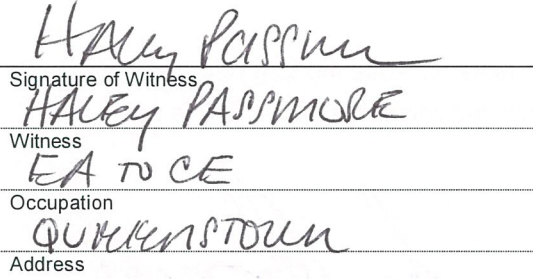 Haley Passmore
Signature of Witness
HALEY PASSMORE
Witness
EA TO CE
Occupation
QUEENSTOWN
Address